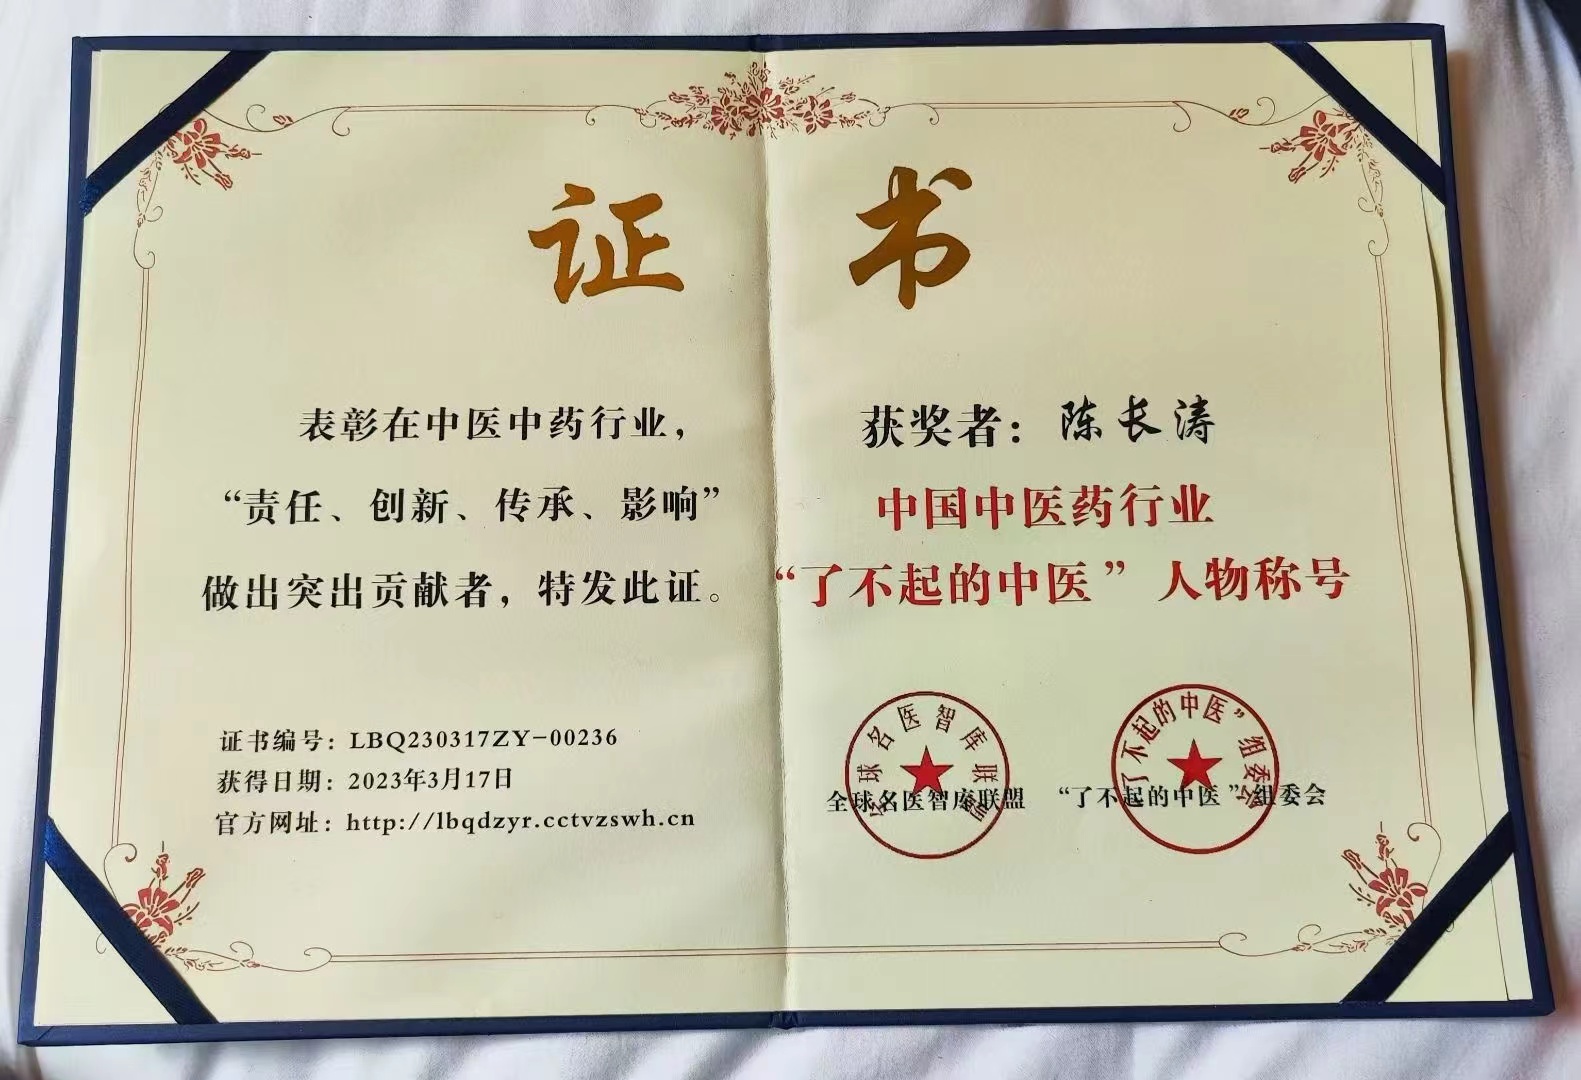 证书
表彰在中医中药行业，
“责任、创新、传承、影响”
做出突出贡献者，特发此证。
证书编号：LBQ230317ZY-00236
获得日期：2023年3月17日
官方网址：http://lbqdzyr.cctvzswh.cn
获奖者：陈长涛
中国中医药行业
“了不起的中医”人物称号
全球名医智库联盟
“了不起的中医”组委会
全球名医智库联盟
“了不起的中医”组委会